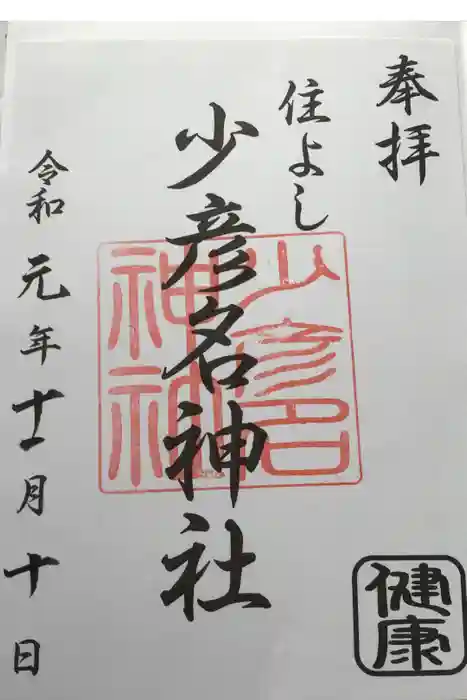 奉拝
住よし
少彦名神社
少彦名
神社
令和元年十一月十日
健康